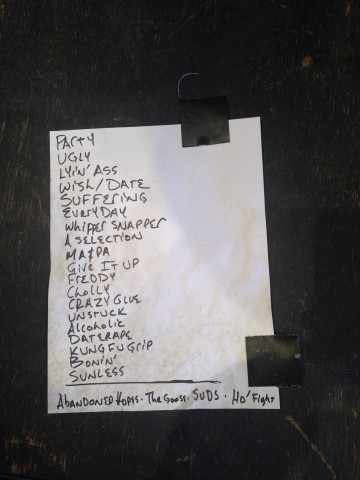 PARTY
UGLY
LYIN' ASS
WISH/DATE
SUFFERING
EVERYDAY
WHIPPER SNAPPER
A SELECTION
MA & PA
GIVE IT UP
FREDDY
CHOLLY
CRAZY GLUE
UNSTUCK
ALCOHOLIC
DATERAPE
KUNG FU GRIP
BONIN'
SUNLESS
ABANDONED HOPES · THE GOOSE · SUDS · HO' FIGHT